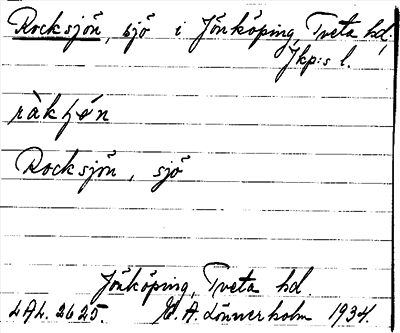 Rocksjön, sjö i Jönköping, Tveta hd,
Jkp:s l.
Rocksjön, sjö
Jönköping, Tveta hd.
LAL. 2625. E. A. Lönnerholm 1934.